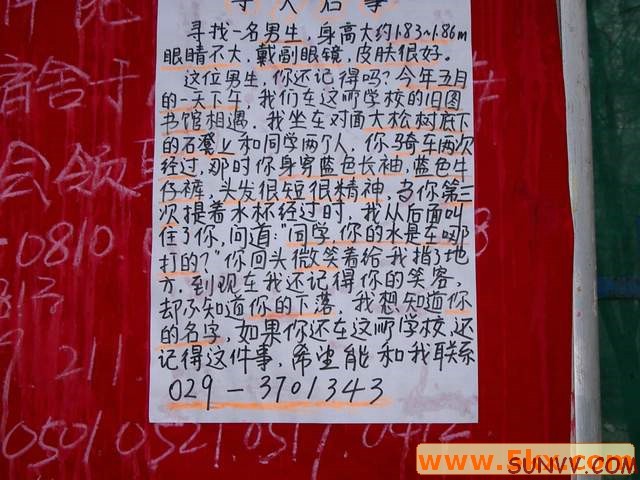 寻人启事
寻找一名男生，身高大约1.83~1.86m
眼睛不大，戴副眼镜，皮肤很好。
这位男生，你还记得吗？今年五月
的一天下午，我们在这所学校的旧图
书馆相遇，我坐在对面大松树底下
的石凳上和同学两个人，你骑车两次
经过，那时你身穿蓝色长袖，蓝色牛
仔裤，头发很短很精神，当你第三
次提着水杯经过时，我从后面叫
住了你，问道："同学，你的水是在哪
打的？"你回头微笑着给我指了地
方，到现在我还记得你的笑容，
却不知道你的下落，我想知道你
的名字，如果你还在这所学校，还
记得这件事，希望能和我联系
029－3701343
宿舍于
会领
-0810
211
0501 0521 0517. 0412
SUNVV.COM